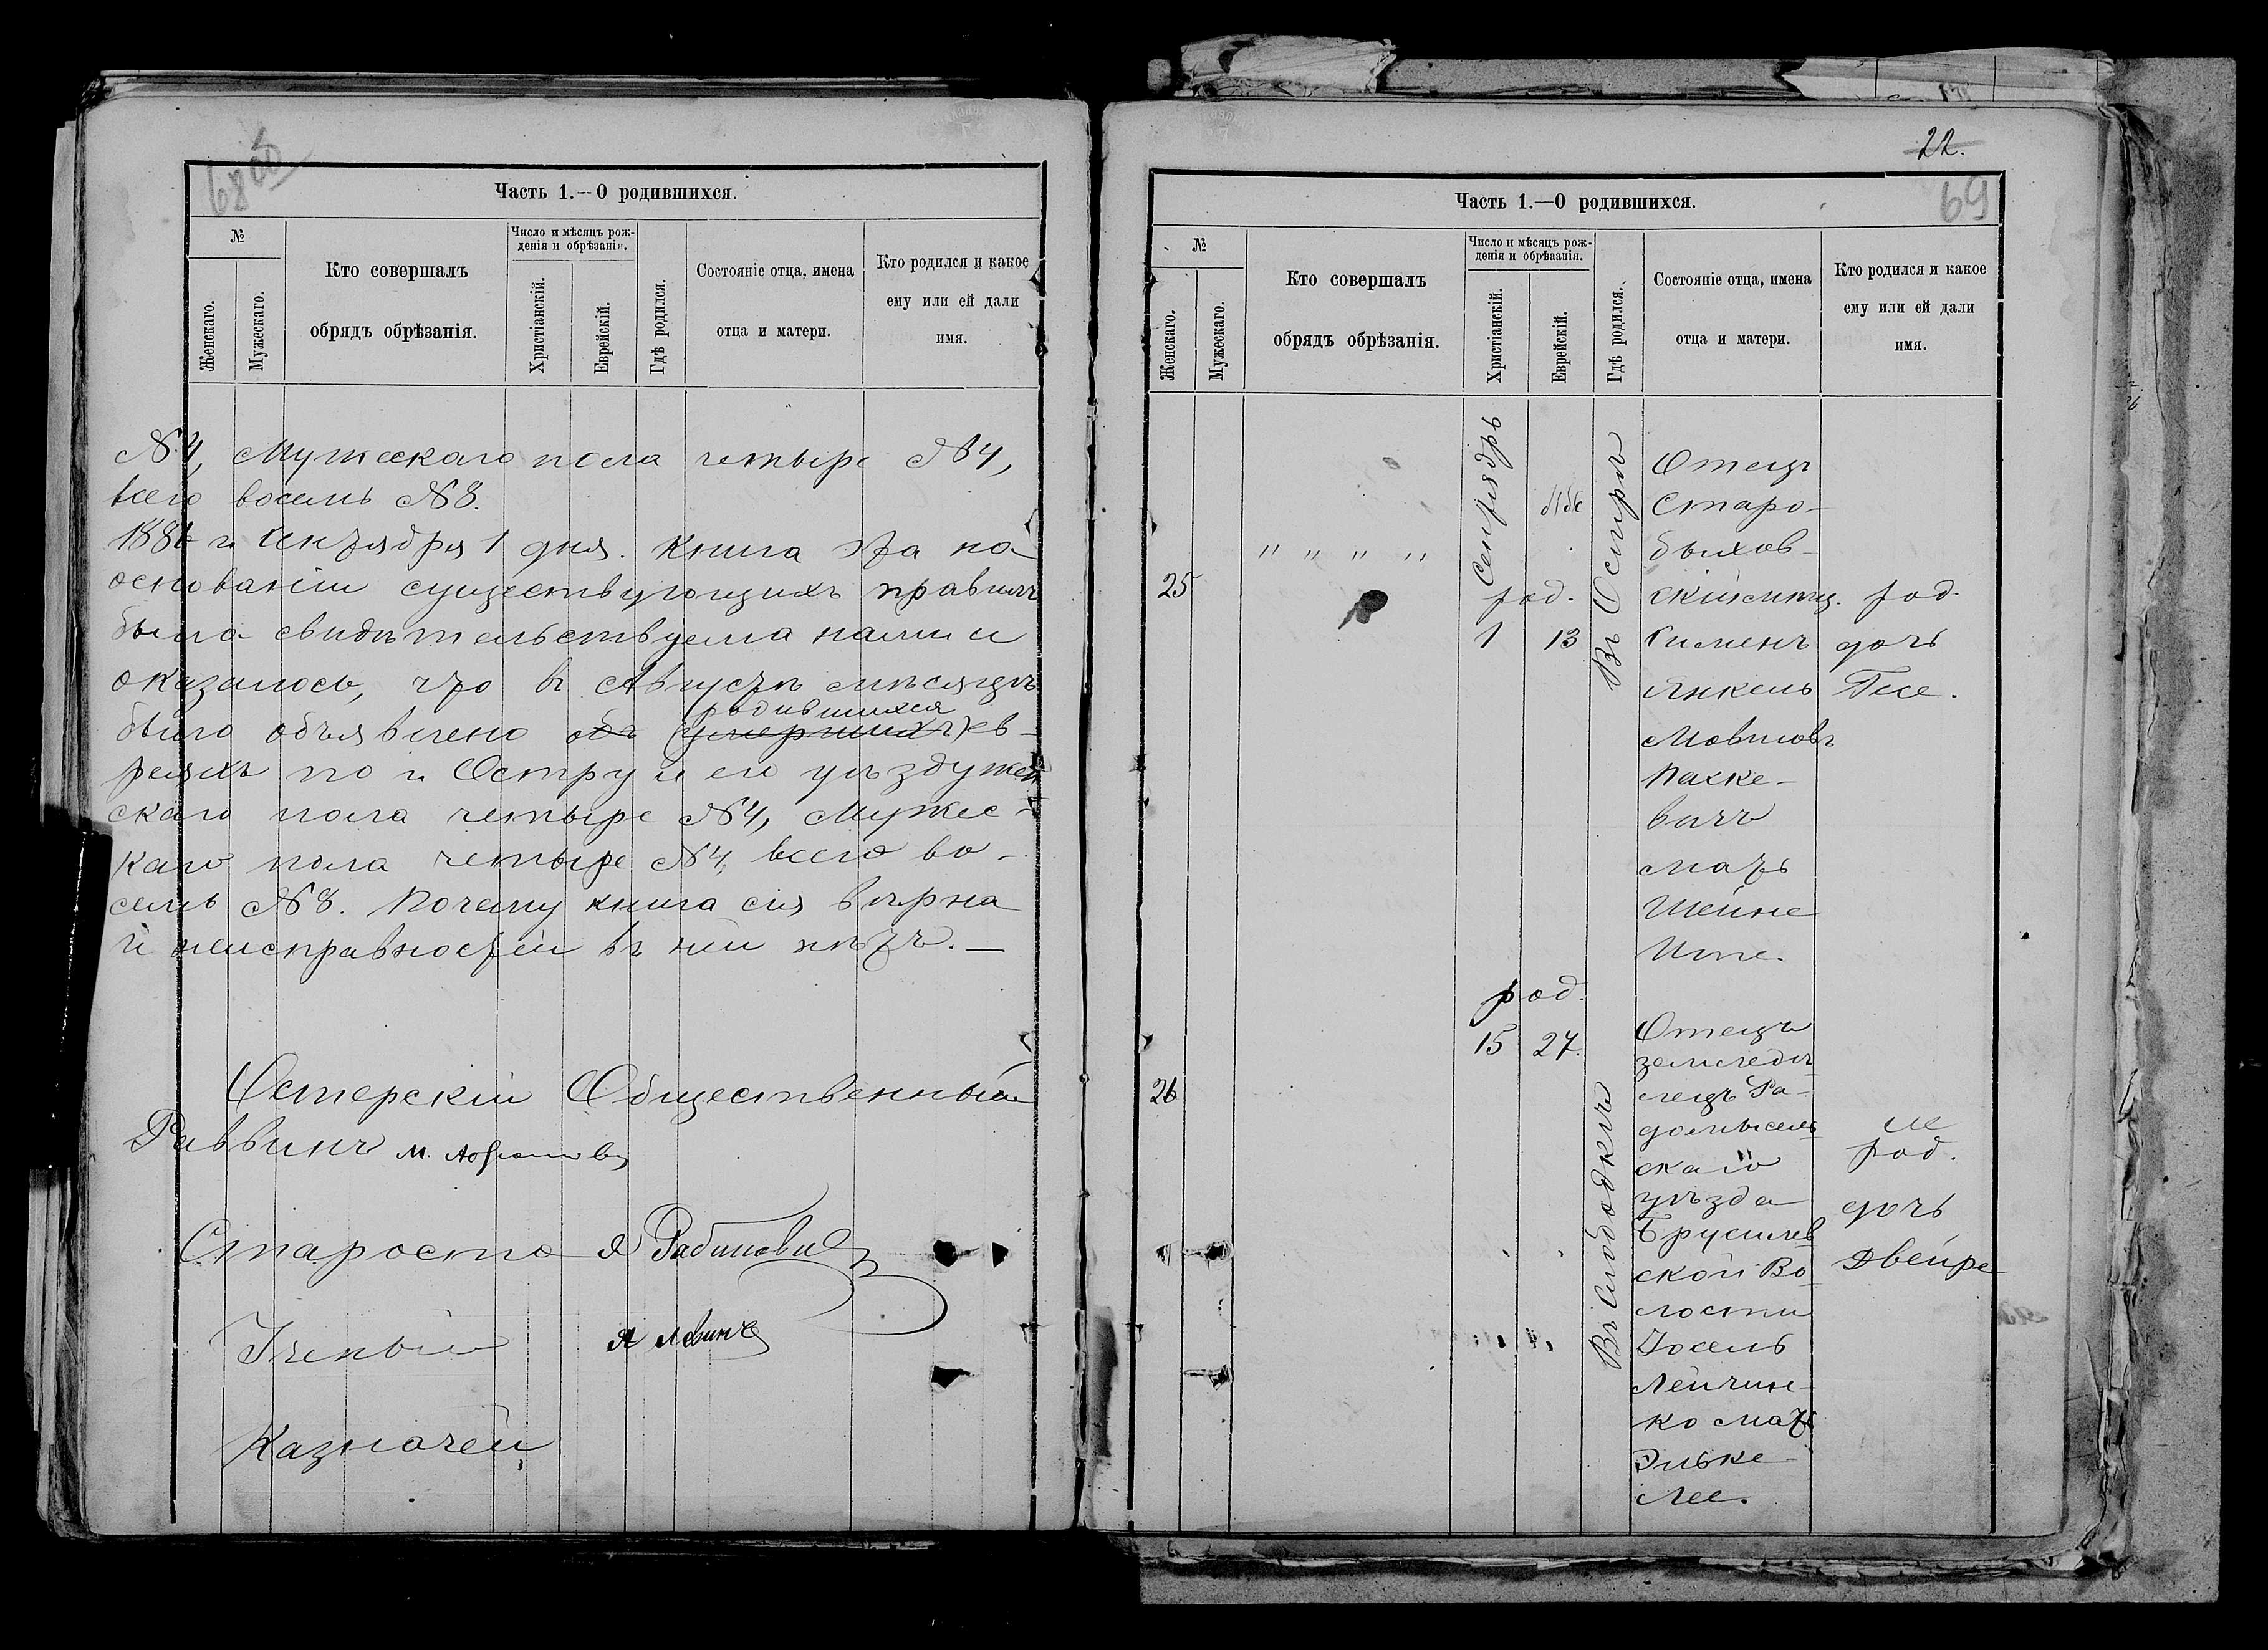 68 об
Часть 1.—О родившихся.
№
Женскаго.
Мужескаго.
Кто совершалъ
обрядъ обрѣзанія.
Число и мѣсяцъ рож-
денія и обрѣзанія.
Христіанскій.
Еврейскій.
Гдѣ родился.
Состояніе отца, имена
отца и матери.
Кто родился и какое
ему или ей дали
имя.
№ 4, Мужескаго пола четыре №4,
всего восемь №8.
1886 г. Сентября 1 дня. Книга эта на
основаніи существующихъ правилъ
была свидѣтельствуема нами и
оказалось, что въ Августѣ мѣсяцѣ
родившихся
было объявлено объ (умершихъ) ев-
реяхъ по г. Остру и его уѣзду жен
скаго пола четыре №4, Мужес-
каго пола четыре №4, всего во-
семь №8. Почему книга сія вѣрна
и неисправностей въ ней нѣтъ.—
Остерскій Общественный
Раввинъ М.
Староста Я Рабинович
Ученый Я Левинъ
Казначей
22.
69
Часть 1.—О родившихся.
№
Женскаго.
Мужескаго.
Кто совершалъ
обрядъ обрѣзанія.
Число и мѣсяцъ рож-
денія и обрѣзанія.
Христіанскій.
Еврейскій.
Гдѣ родился.
Состояніе отца, имена
отца и матери.
Кто родился и какое
ему или ей дали
имя.
25
" " " "
Сентябрь
род.
1
13
Въ Острѣ
Отецъ
Старо-
быхов-
скій мѣщ.
Янкель
Мовшовъ
Пахке-
вичъ
мать
Шейне
Ите.
род.
дочь
Гесе.
26
род.
15
27.
Въ Слободкѣ
Отецъ
земледѣ-
лецъ Ра-
домысль-
скаго
уѣзда
Брусилев
ской Во-
лости
Іосель
Лейчин-
ко мать
Элька
Лее.
род.
дочь
Двейре